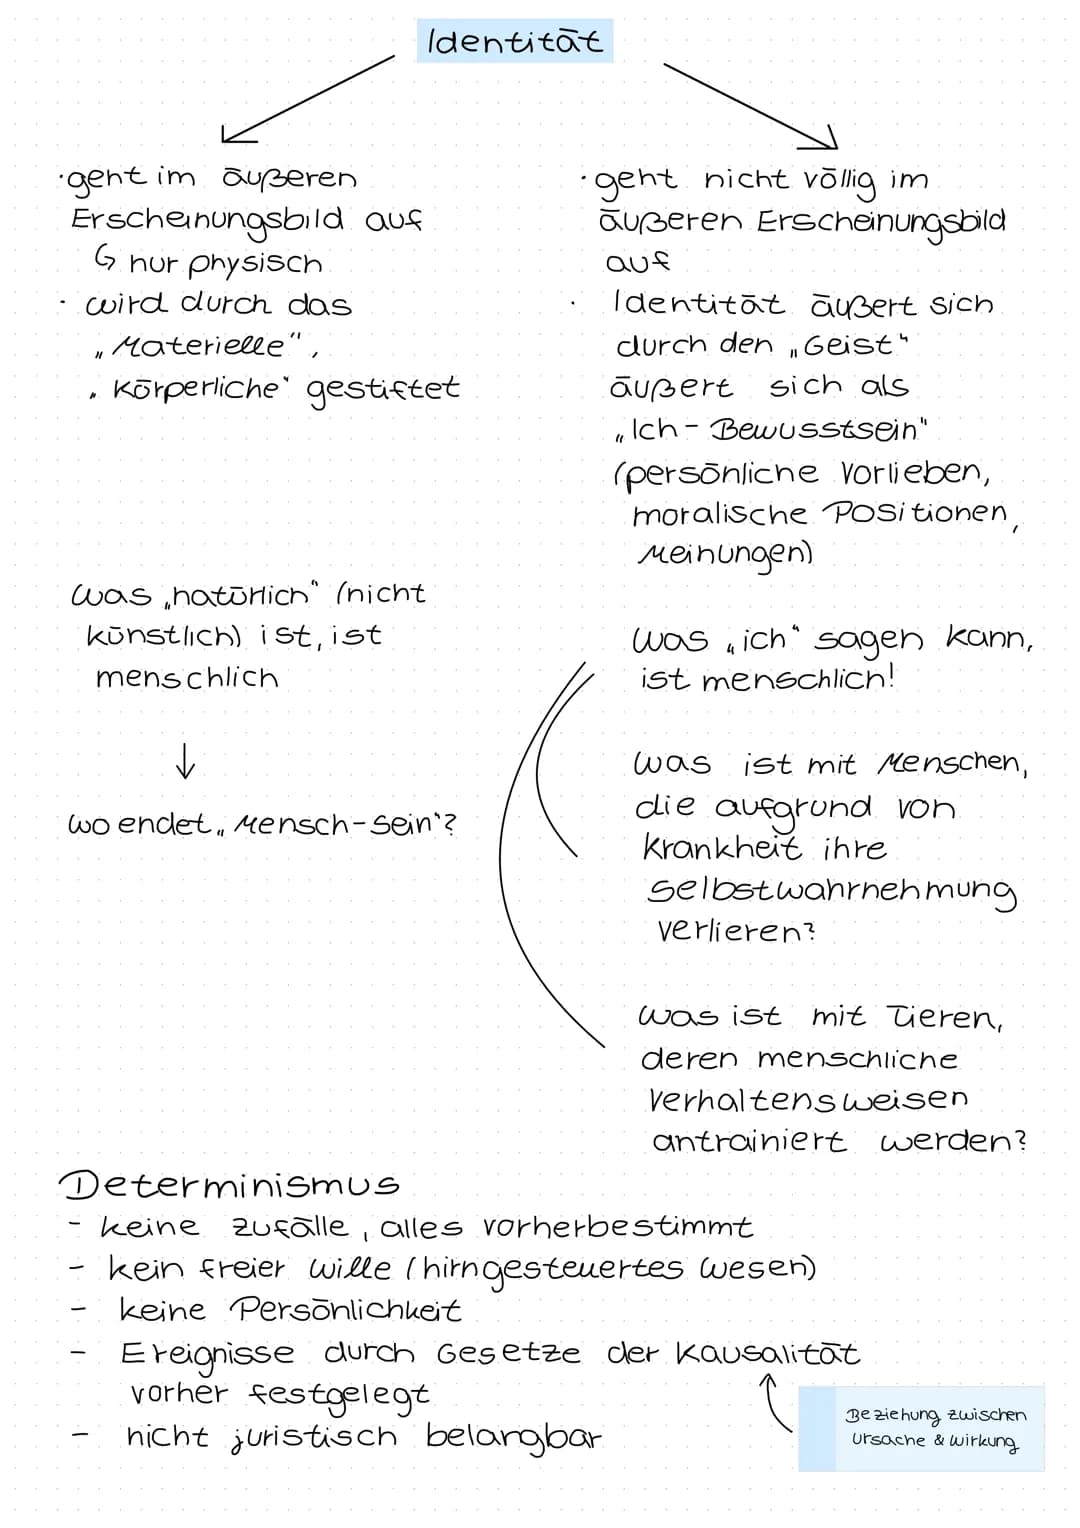 Identität
· geht im äußeren
Erscheinungsbild auf
↳ nur physisch
· wird durch das
„Materielle",
„Körperliche" gestiftet
was „natürlich" (nicht
künstlich) ist, ist
menschlich
↓
wo endet „Mensch-sein"?
· geht nicht völlig im
äußeren Erscheinungsbild
auf
· Identität äußert sich
durch den „Geist"
äußert sich als
„Ich-Bewusstsein"
(persönliche Vorlieben,
moralische Positionen,
Meinungen)
was „ich" sagen kann,
ist menschlich!
was ist mit Menschen,
die aufgrund von
Krankheit ihre
Selbstwahrnehmung
verlieren?
was ist mit Tieren,
deren menschliche
Verhaltensweisen
antrainiert werden?
Determinismus
- keine Zufälle, alles vorherbestimmt
- kein freier Wille (hirngesteuertes Wesen)
- keine Persönlichkeit
- Ereignisse durch Gesetze der Kausalität
vorher festgelegt
- nicht juristisch belangbar
Beziehung zwischen
Ursache & Wirkung